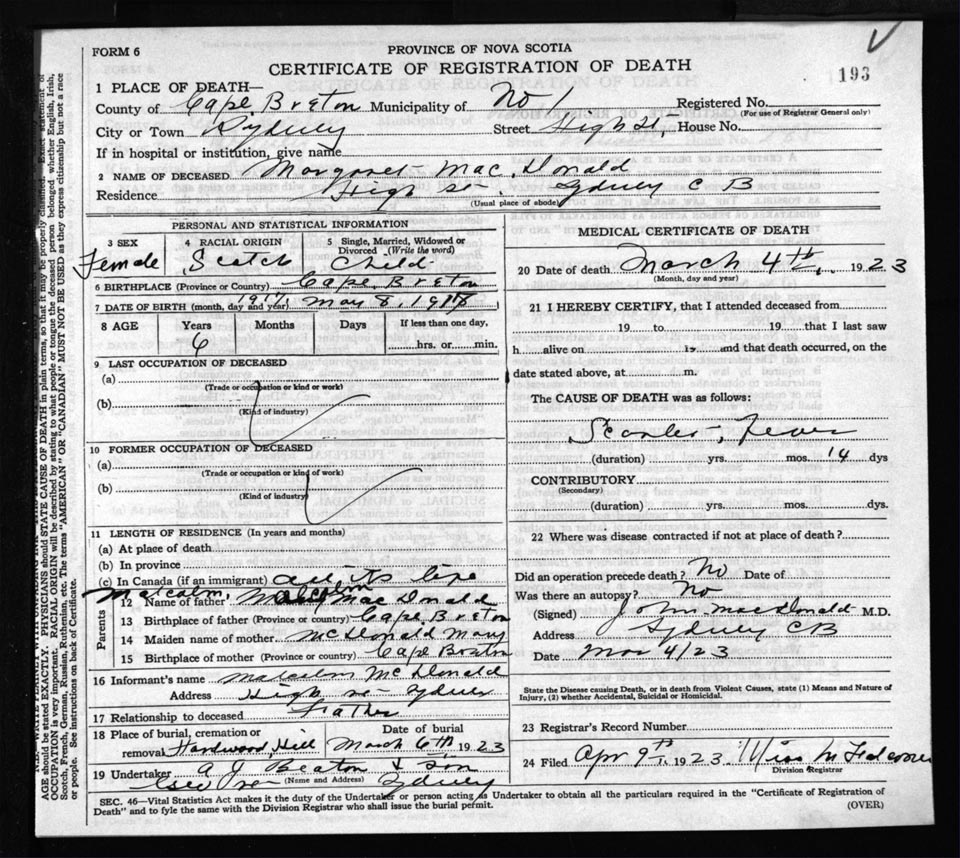 FORM 6
PROVINCE OF NOVA SCOTIA
CERTIFICATE OF REGISTRATION OF DEATH
193
1 PLACE OF DEATH—
County of Cape Breton Municipality of No 1 Registered No.
(For use of Registrar General only)
City or Town Sydney Street High St, House No.
If in hospital or institution, give name
2 NAME OF DECEASED Margaret Mac Donald
Residence High St. Sydney C B
(Usual place of abode)
PERSONAL AND STATISTICAL INFORMATION
3 SEX 4 RACIAL ORIGIN 5 Single, Married, Widowed or Divorced (Write the word)
Female Scotch Child
6 BIRTHPLACE (Province or Country) Cape Breton
7 DATE OF BIRTH (month, day and year) 1917 May 8, 1917
8 AGE Years Months Days If less than one day,
6 hrs. or min.
9 LAST OCCUPATION OF DECEASED
(a)
(Trade or occupation or kind or work)
(b)
(Kind of industry)
10 FORMER OCCUPATION OF DECEASED
(a)
(Trade or occupation or kind of work)
(b)
(Kind of industry)
11 LENGTH OF RESIDENCE (In years and months)
(a) At place of death
(b) In province
(c) In Canada (if an immigrant) all its life
Parents
Malcolm,
12 Name of father Malcolm Mac Donald
13 Birthplace of father (Province or country) Cape Breton
14 Maiden name of mother McDonald Mary
15 Birthplace of mother (Province or country) Cape Breton
16 Informant's name Malcolm McDonald
Address High St Sydney
17 Relationship to deceased Father
18 Place of burial, cremation or removal Hardwood Hill Date of burial March 6th 1923
19 Undertaker A J Beaton & Son
(Name and Address) Sydney
MEDICAL CERTIFICATE OF DEATH
20 Date of death March 4th, 1923
(Month, day and year)
21 I HEREBY CERTIFY, that I attended deceased from
19 to 19 that I last saw
h alive on 19 and that death occurred, on the
date stated above, at m.
The CAUSE OF DEATH was as follows:
Scarlet Fever
(duration) yrs. mos. 14 dys
CONTRIBUTORY
(Secondary)
(duration) yrs. mos. dys
22 Where was disease contracted if not at place of death?
Did an operation precede death? No Date of
Was there an autopsy? No
(Signed) John MacDonald M.D.
Address Sydney CB
Date Mar 4/23
State the Disease causing Death, or in death from Violent Causes, state (1) Means and Nature of
Injury, (2) whether Accidental, Suicidal or Homicidal.
23 Registrar's Record Number
24 Filed Apr 9th, 1923 Miss
Division Registrar
SEC. 46—Vital Statistics Act makes it the duty of the Undertaker or person acting as Undertaker to obtain all the particulars required in the "Certificate of Registration of
Death" and to fyle the same with the Division Registrar who shall issue the burial permit.
(OVER)
AGE should be stated EXACTLY. PHYSICIANS should STATE CAUSE OF DEATH in plain terms, so that it may be properly classified. Exact statement of
OCCUPATION is very important. RACIAL ORIGIN will be described by stating to what people or tongue the deceased person belonged whether English, Irish,
Scotch, French, German, Russian, Ruthenian, etc. The terms "AMERICAN" OR "CANADIAN" MUST NOT BE USED as they express citizenship but not a race
or people. See instructions on back of Certificate.